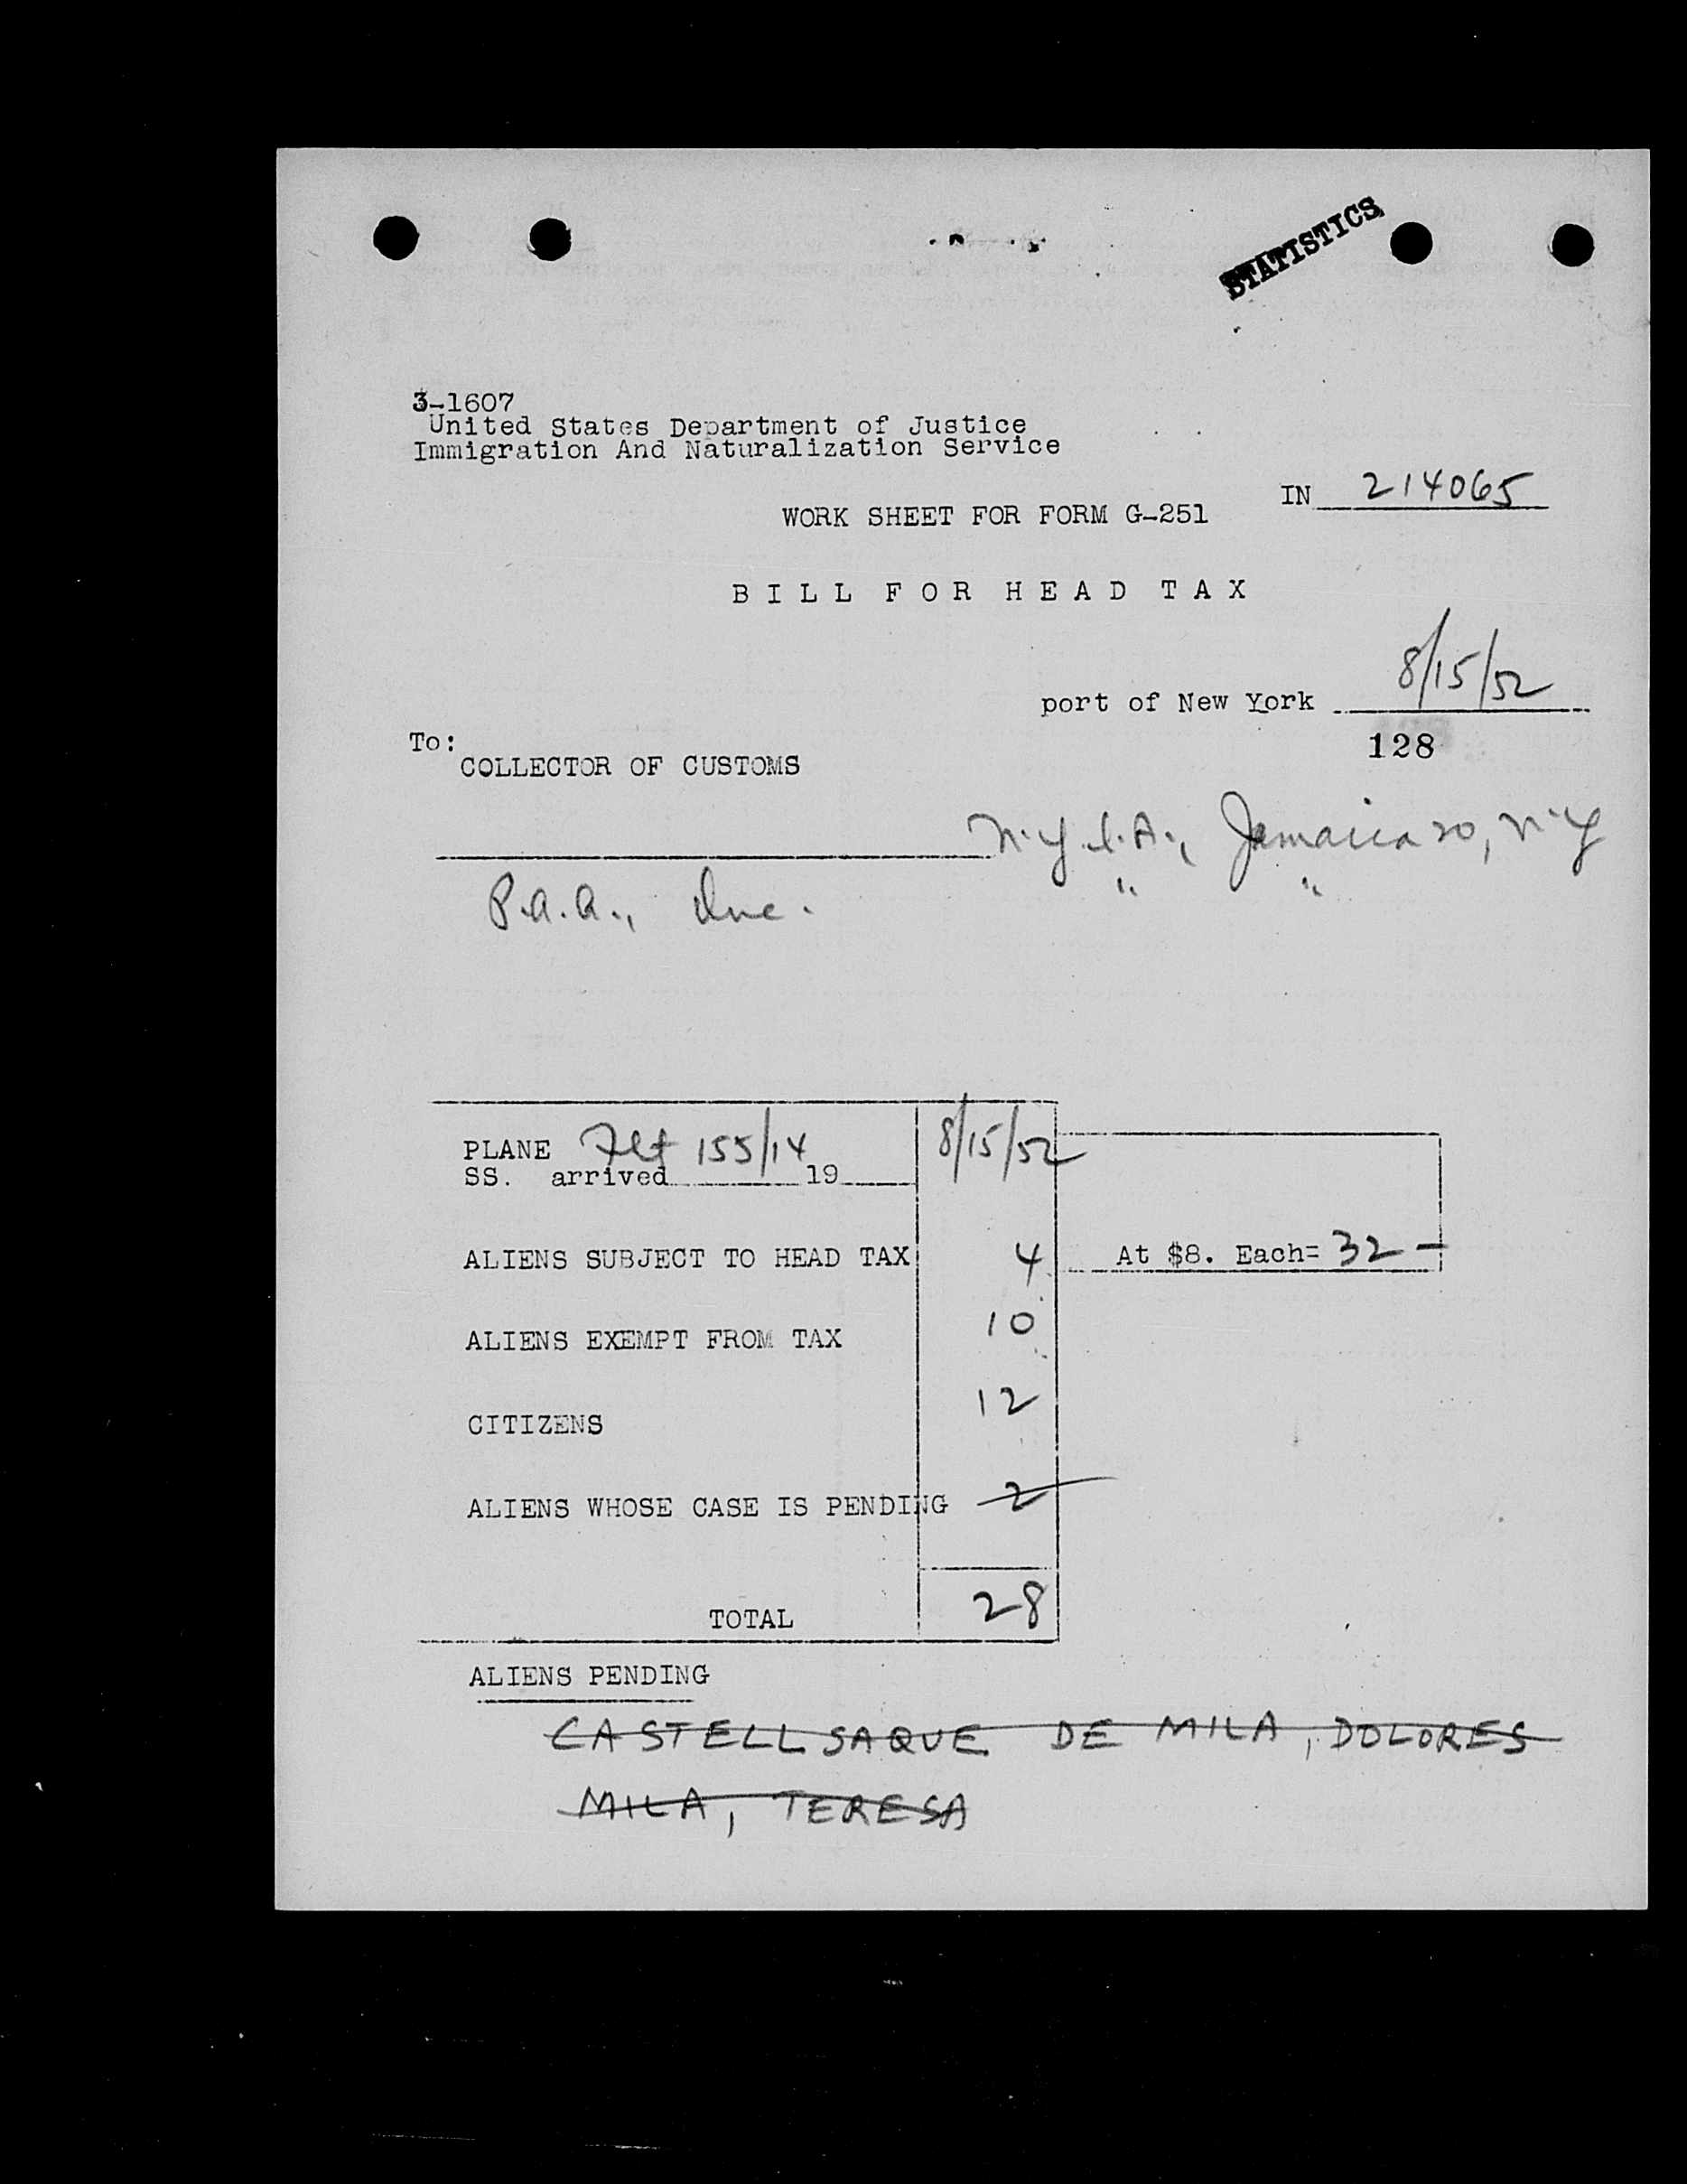 STATISTICS
3-1607
United States Department of Justice
Immigration And Naturalization Service
IN 214065
WORK SHEET FOR FORM G-251
BILL FOR HEAD TAX
port of New York 8/15/52
128
To:
COLLECTOR OF CUSTOMS
N.Y.I.A., Jamaica 20, N.Y
P.A.A., Inc. " "
PLANE Flt 155/14 8/15/52
SS. arrived 19
ALIENS SUBJECT TO HEAD TAX 4 At $8. Each= 32 -
ALIENS EXEMPT FROM TAX 10
CITIZENS 12
ALIENS WHOSE CASE IS PENDING 2
TOTAL 28
ALIENS PENDING
CASTELLSAQUE DE MILA, DOLORES
MILA, TERESA